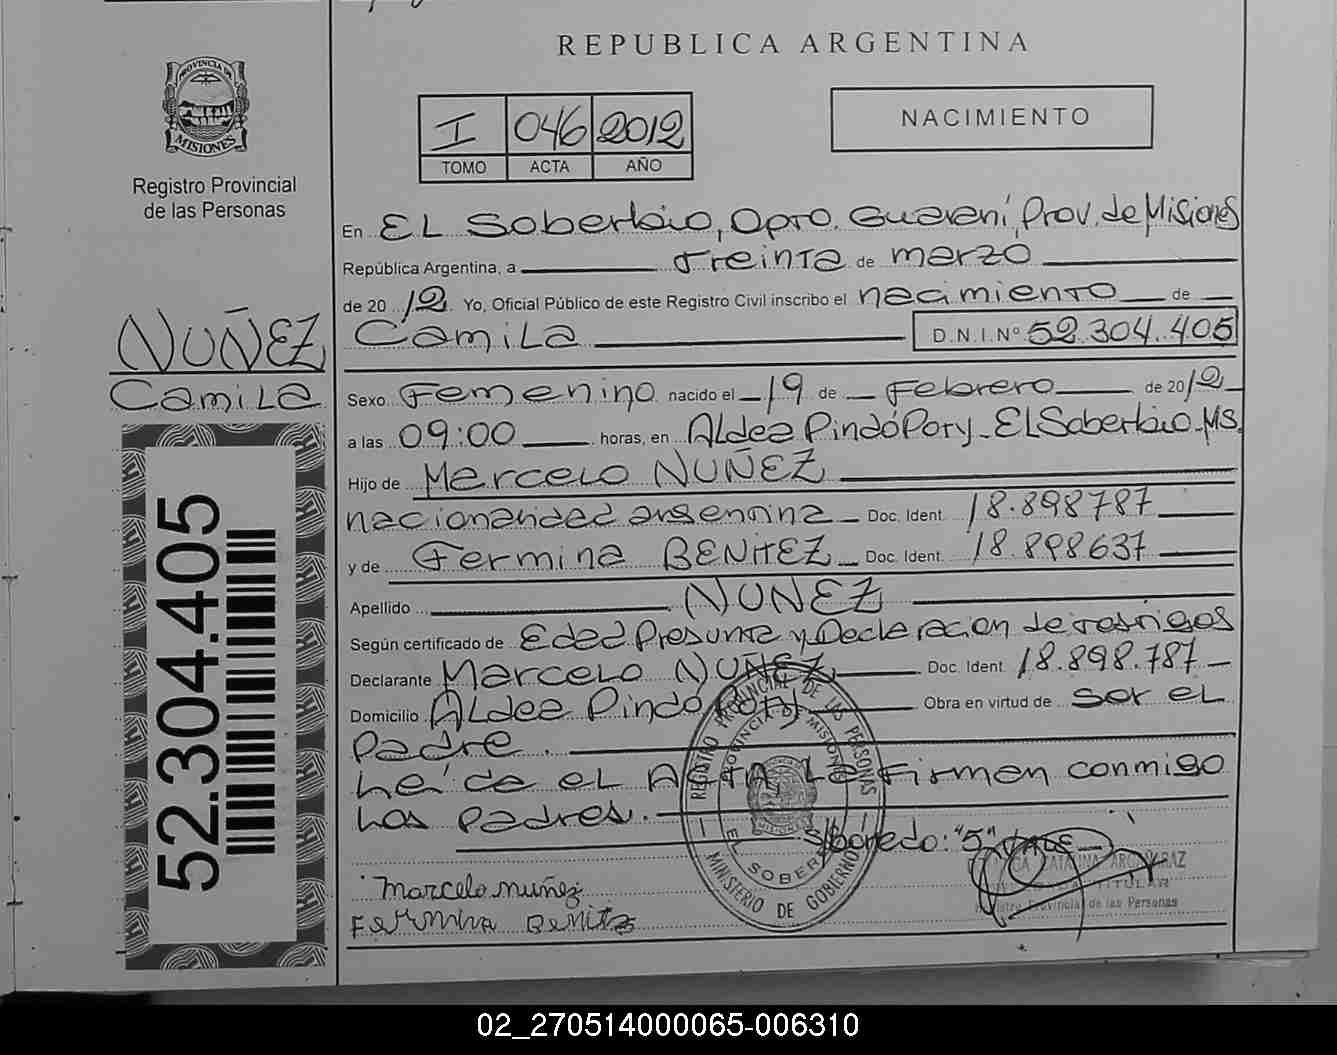 REPUBLICA ARGENTINA
PROVINCIA DE
MISIONES
Registro Provincial
de las Personas
I 046 2012
TOMO ACTA AÑO
NACIMIENTO
NUÑEZ
Camila
52.304.405
En EL Soberbio, Dpto. Guaraní, Prov. de Misiones
República Argentina, a Treinta de marzo
de 20 12 Yo, Oficial Público de este Registro Civil inscribo el nacimiento de
Camila D.N.I. Nº 52.304.405
Sexo Femenino nacido el 19 de Febrero de 2012
a las 09:00 horas, en Aldea Pindó Poty - El Soberbio - MS.
Hijo de Marcelo NUÑEZ
nacionalidad argentina Doc. Ident. 18.898787
y de Fermina BENITEZ Doc. Ident. 18.898637
Apellido NUÑEZ
Según certificado de Edad Presunta y Declaración de testigos
Declarante Marcelo NUÑEZ Doc. Ident. 18.898.787
Domicilio Aldea Pindó Poty Obra en virtud de ser el
Padre.
Leída el ACTA La Firman conmigo
Los padres.
S/borrado: "5" Vale
Marcelo nuñez
Fermina Benitez
REGISTRO PROVINCIAL DE LAS PERSONAS
PROVINCIA DE MISIONES
EL SOBERBIO
MINISTERIO DE GOBIERNO
TITULAR
Registro Provincial de las Personas
02_270514000065-006310